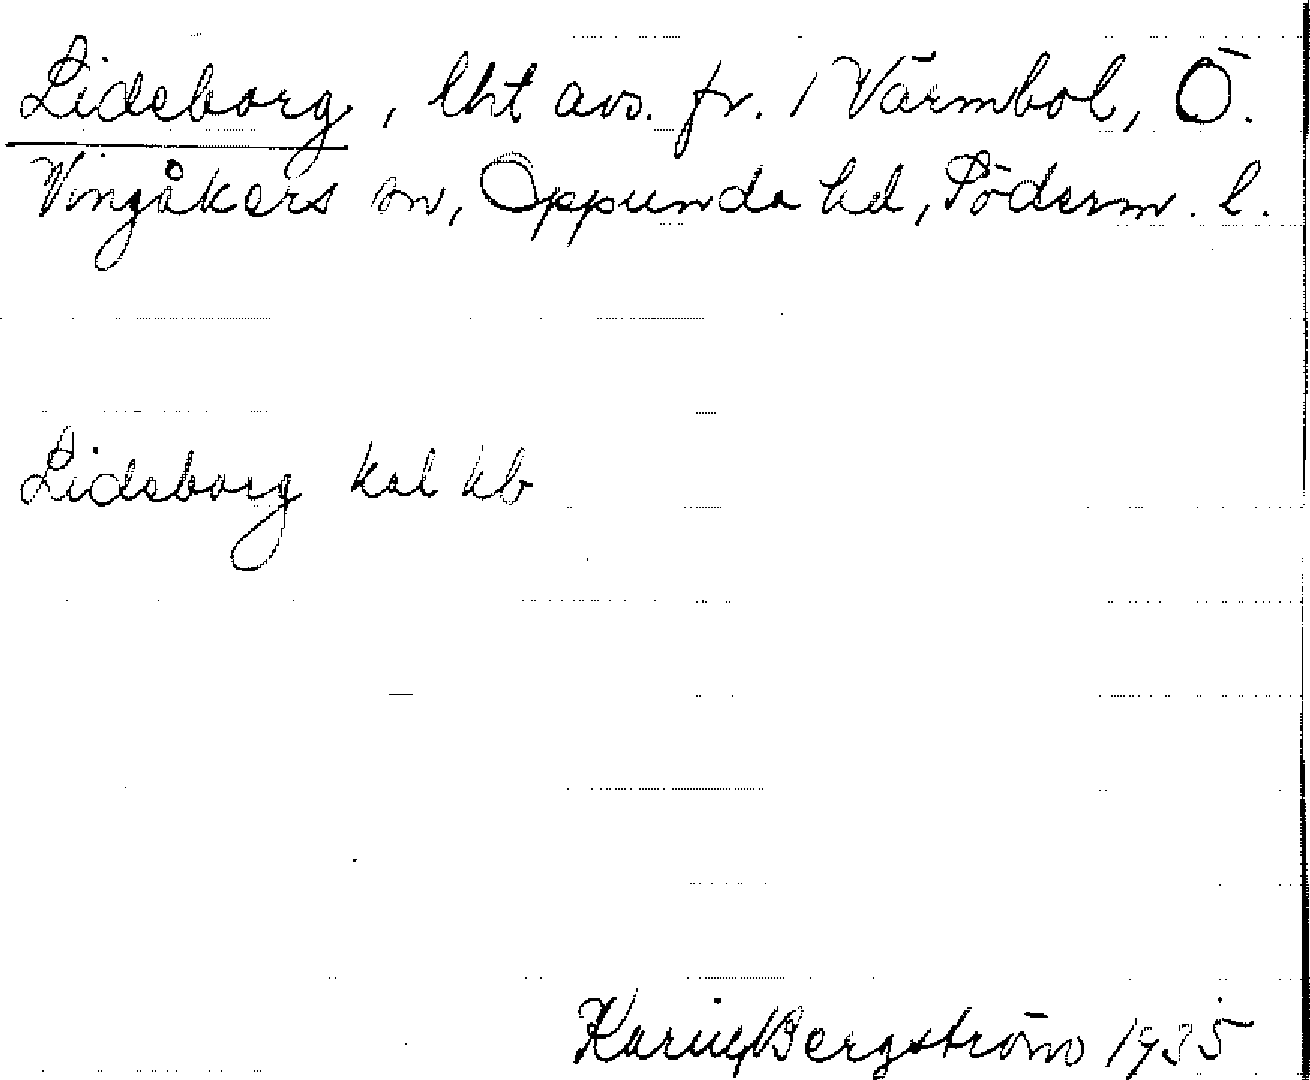 Lidsborg, lht avs. fr. 1 Värmbol, Ö.
Vingåkers sn, Oppunda hd, Söderm. l.
Lidsborg kal kb
Karin Bergström 1935